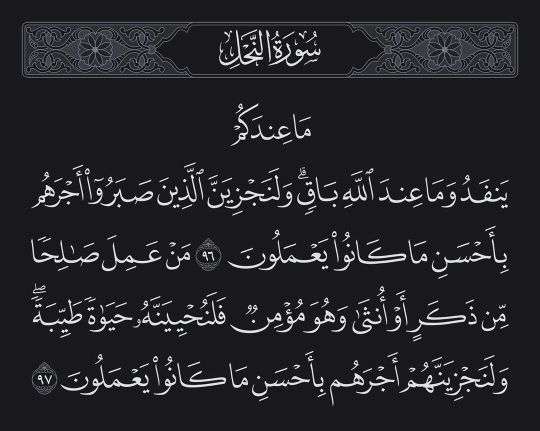 سُورَةُ النَّحْلِ
مَا عِندَكُمْ
يَنفَدُ وَمَا عِندَ ٱللَّهِ بَاقٍۗ وَلَنَجْزِيَنَّ ٱلَّذِينَ صَبَرُوٓاْ أَجْرَهُم
بِأَحْسَنِ مَا كَانُواْ يَعْمَلُونَ ٩٦ مَنْ عَمِلَ صَٰلِحٗا
مِّن ذَكَرٍ أَوْ أُنثَىٰ وَهُوَ مُؤْمِنٞ فَلَنُحْيِيَنَّهُۥ حَيَوٰةٗ طَيِّبَةٗۖ
وَلَنَجْزِيَنَّهُمْ أَجْرَهُم بِأَحْسَنِ مَا كَانُواْ يَعْمَلُونَ ٩٧